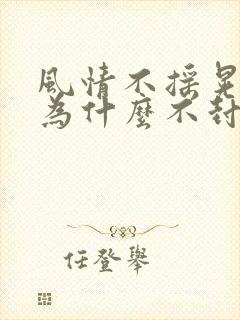 風情不搖晃
為什麼不封
任登舉